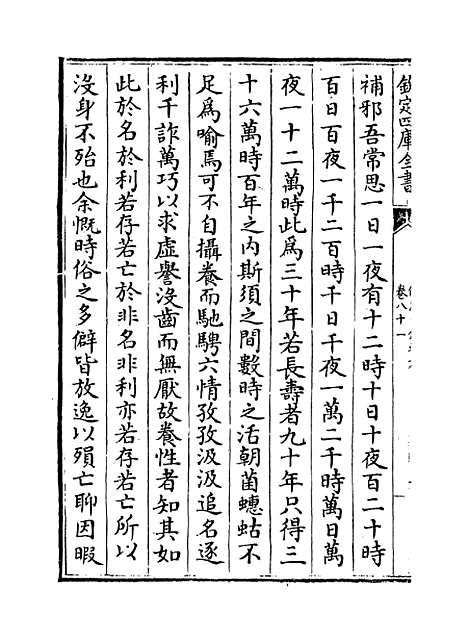 欽定四庫全書
卷八十一
補邪吾常思一日一夜有十二時十日十夜百二十時
百日百夜一千二百時千日千夜一萬二千時萬日萬
夜一十二萬時此為三十年若長壽者九十年只得三
十六萬時百年之内斯須之間數時之活朝菌蟪蛄不
足為喻焉可不自攝養而馳騁六情孜孜汲汲追名逐
利千詐萬巧以求虛譽沒齒而無厭故養性者知其如
此於名於利若存若亡於非名非利亦若存若亡所以
沒身不殆也余慨時俗之多僻皆放逸以殞亡聊因暇